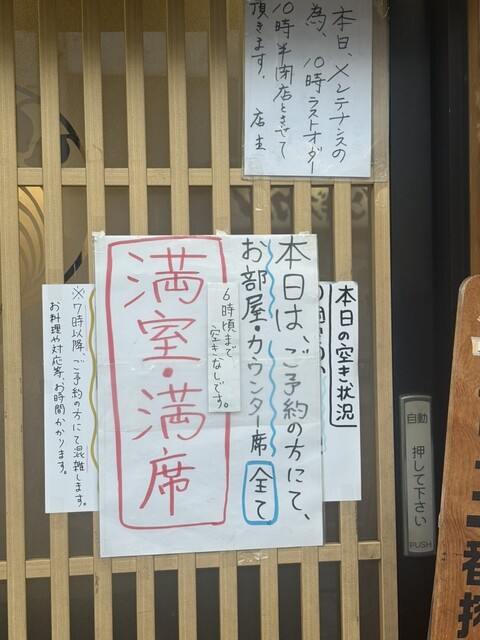 本日、メンテナンスの
為、10時ラストオダー
10時半閉店とさせて
頂きます.
店主
本日の空き状況
本日は、ご予約の方にて、
お部屋・カウンター席全て
満室・満席
6時頃まで
空きなしです。
※7時以降、ご予約の方にて混雑します。
お料理や対応等、お時間かかります。
自動
押して下さい
PUSH